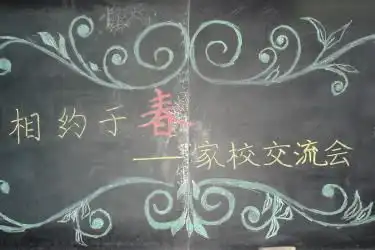 相约于春
——家校交流会